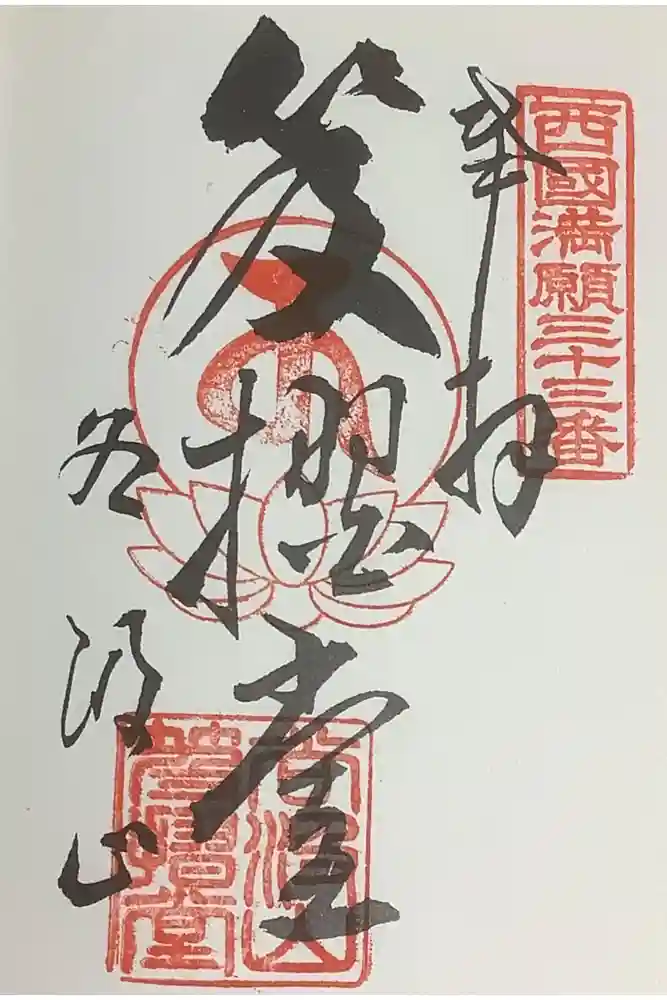 西國満願三十三番
奉拝
笈摺堂
谷汲山
谷汲山
笈摺堂